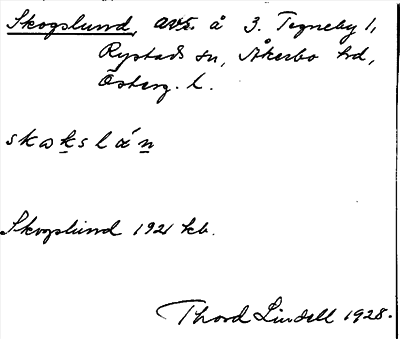 Skogslund, avs. å 3. Tegneby 1,
Rystads sn, Åkerbo hd,
Österg. l.
skɷkslán
Skogslund 1921 kb.
Thord Lindell 1928.